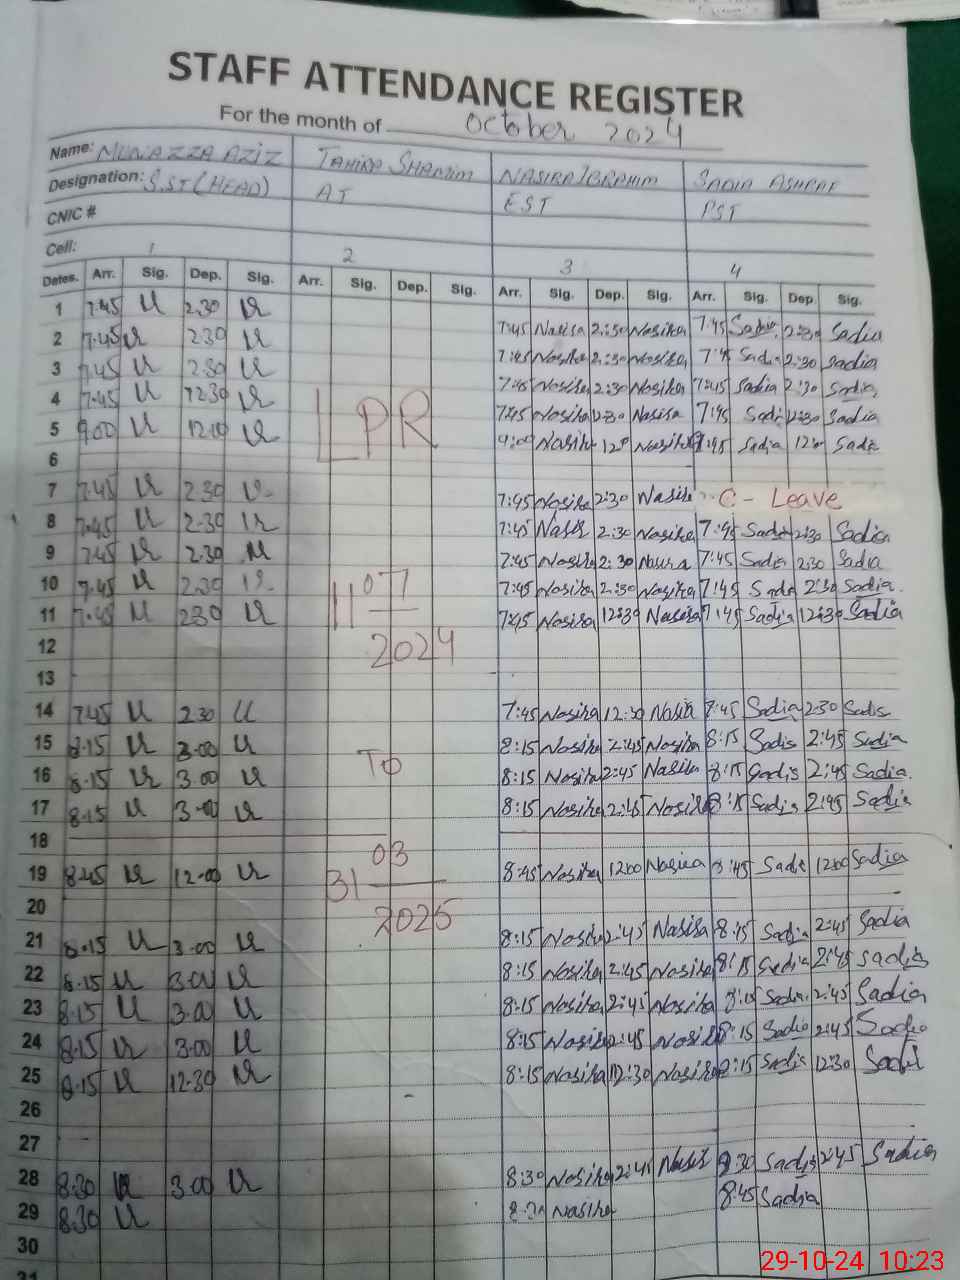 STAFF ATTENDANCE REGISTER
For the month of October 2024
Name: MUNAZZA AZIZ TAHIRA SHAMIM NASIRA IBRAHIM SADIA ASHRAF
Designation: S.ST (HEAD) AT EST PST
CNIC #
Cell: 1 2 3 4
Dates. Arr. Sig. Dep. Sig. Arr. Sig. Dep. Sig. Arr. Sig. Dep. Sig. Arr. Sig. Dep Sig.
1 7:45 2.30 7:45 Nasira 2:30 Nasira 7:45 Sadia 2:30 Sadia
2 7.45 2.30 7:45 Nasira 2:30 Nasira 7:45 Sadia 2:30 Sadia
3 7.45 2.30 7:45 Nasira 2:30 Nasira 7:45 Sadia 2:30 Sadia
4 7.45 12.30 LPR 7:45 Nasira 2:30 Nasira 7:45 Sadi 2:30 Sadia
5 9.00 12.00 9:00 Nasira 12 Nasira 9:45 Sadia 12 Sadia
6
7 7.45 2.30 7:45 Nasira 2:30 Nasira C - Leave
8 7.45 2.30 7:45 Nasir 2:30 Nasira 7:45 Sadi 2:30 Sadia
9 7.45 2.30 7:45 Nasira 2:30 Nasira 7:45 Sadia 2:30 Sadia
10 7.45 2.30 07 7:45 Nasira 2:30 Nasira 7:45 Sadi 2:30 Sadia
11 7.45 2.30 11 7:45 Nasira 12:30 Nasira 7:45 Sadia 12:30 Sadia
12 2024
13
14 7.45 2.30 7:45 Nasira 12:30 Nasira 7:45 Sadia 2:30 Sadia
15 8.15 3.00 8:15 Nasira 2:45 Nasira 8:15 Sadia 2:45 Sadia
16 8.15 3.00 To 8:15 Nasira 2:45 Nasira 8:15 Sadia 2:45 Sadia
17 8.15 3.00 8:15 Nasira 2:45 Nasira 8:15 Sadia 2:45 Sadia
18 03
19 8.45 12.00 31 8:45 Nasira 12:00 Nasira 8:45 Sadi 12:00 Sadia
20 2025
21 8.15 3.00 8:15 Nasira 2:45 Nasira 8:15 Sadia 2:45 Sadia
22 8.15 3.00 8:15 Nasira 2:45 Nasira 8:15 Sadia 2:45 Sadia
23 8.15 3.00 8:15 Nasira 2:45 Nasira 8:15 Sadia 2:45 Sadia
24 8.15 3.00 8:15 Nasira 2:45 Nasira 8:15 Sadia 2:45 Sadia
25 8.15 12.30 8:15 Nasira 12:30 Nasira 8:15 Sadia 12:30 Sadia
26
27
28 8.30 3.00 8:30 Nasira 2:45 Nasir 8:30 Sadia 2:45 Sadia
29 8.30 8:30 Nasira 8:45 Sadia
30
31
29-10-24 10:23